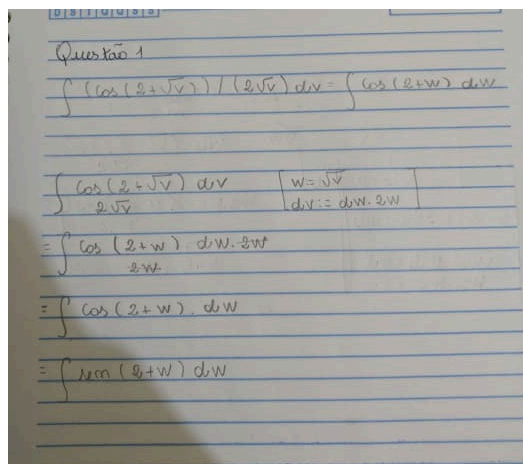 D S T Q Q S S
Questão 1
∫ (cos(2+√v)) / (2√v) dv = ∫ cos(2+w) dw
∫ cos(2+√v) dv / 2√v [w=√v
dv:= dw.2w]
= ∫ cos (2+w) . dw.2w / 2w.
= ∫ cos (2+w) . dw
= ∫ sen (2+w) dw